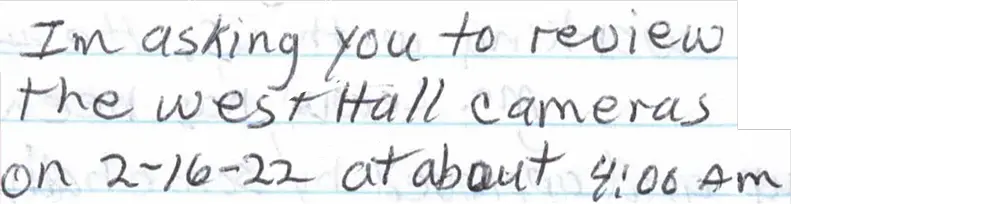 Im asking you to review
the west Hall cameras
on 2-16-22 at about 4:00 Am